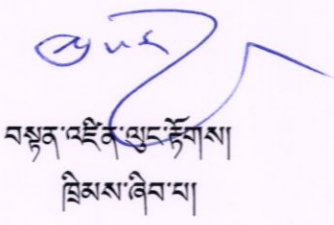 བསྟན་འཛིན་ལུང་རྟོགས།
ཁྲིམས་ཞིབ་པ།